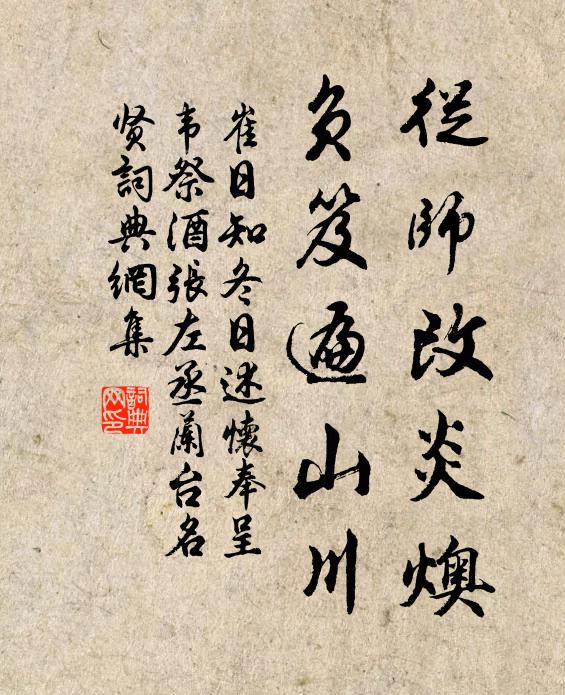 從師改炎燠
負笈遍山川
崔日知冬日述懷奉呈
韦祭酒張左丞蘭台名
贤詞典網集
詞典
网印